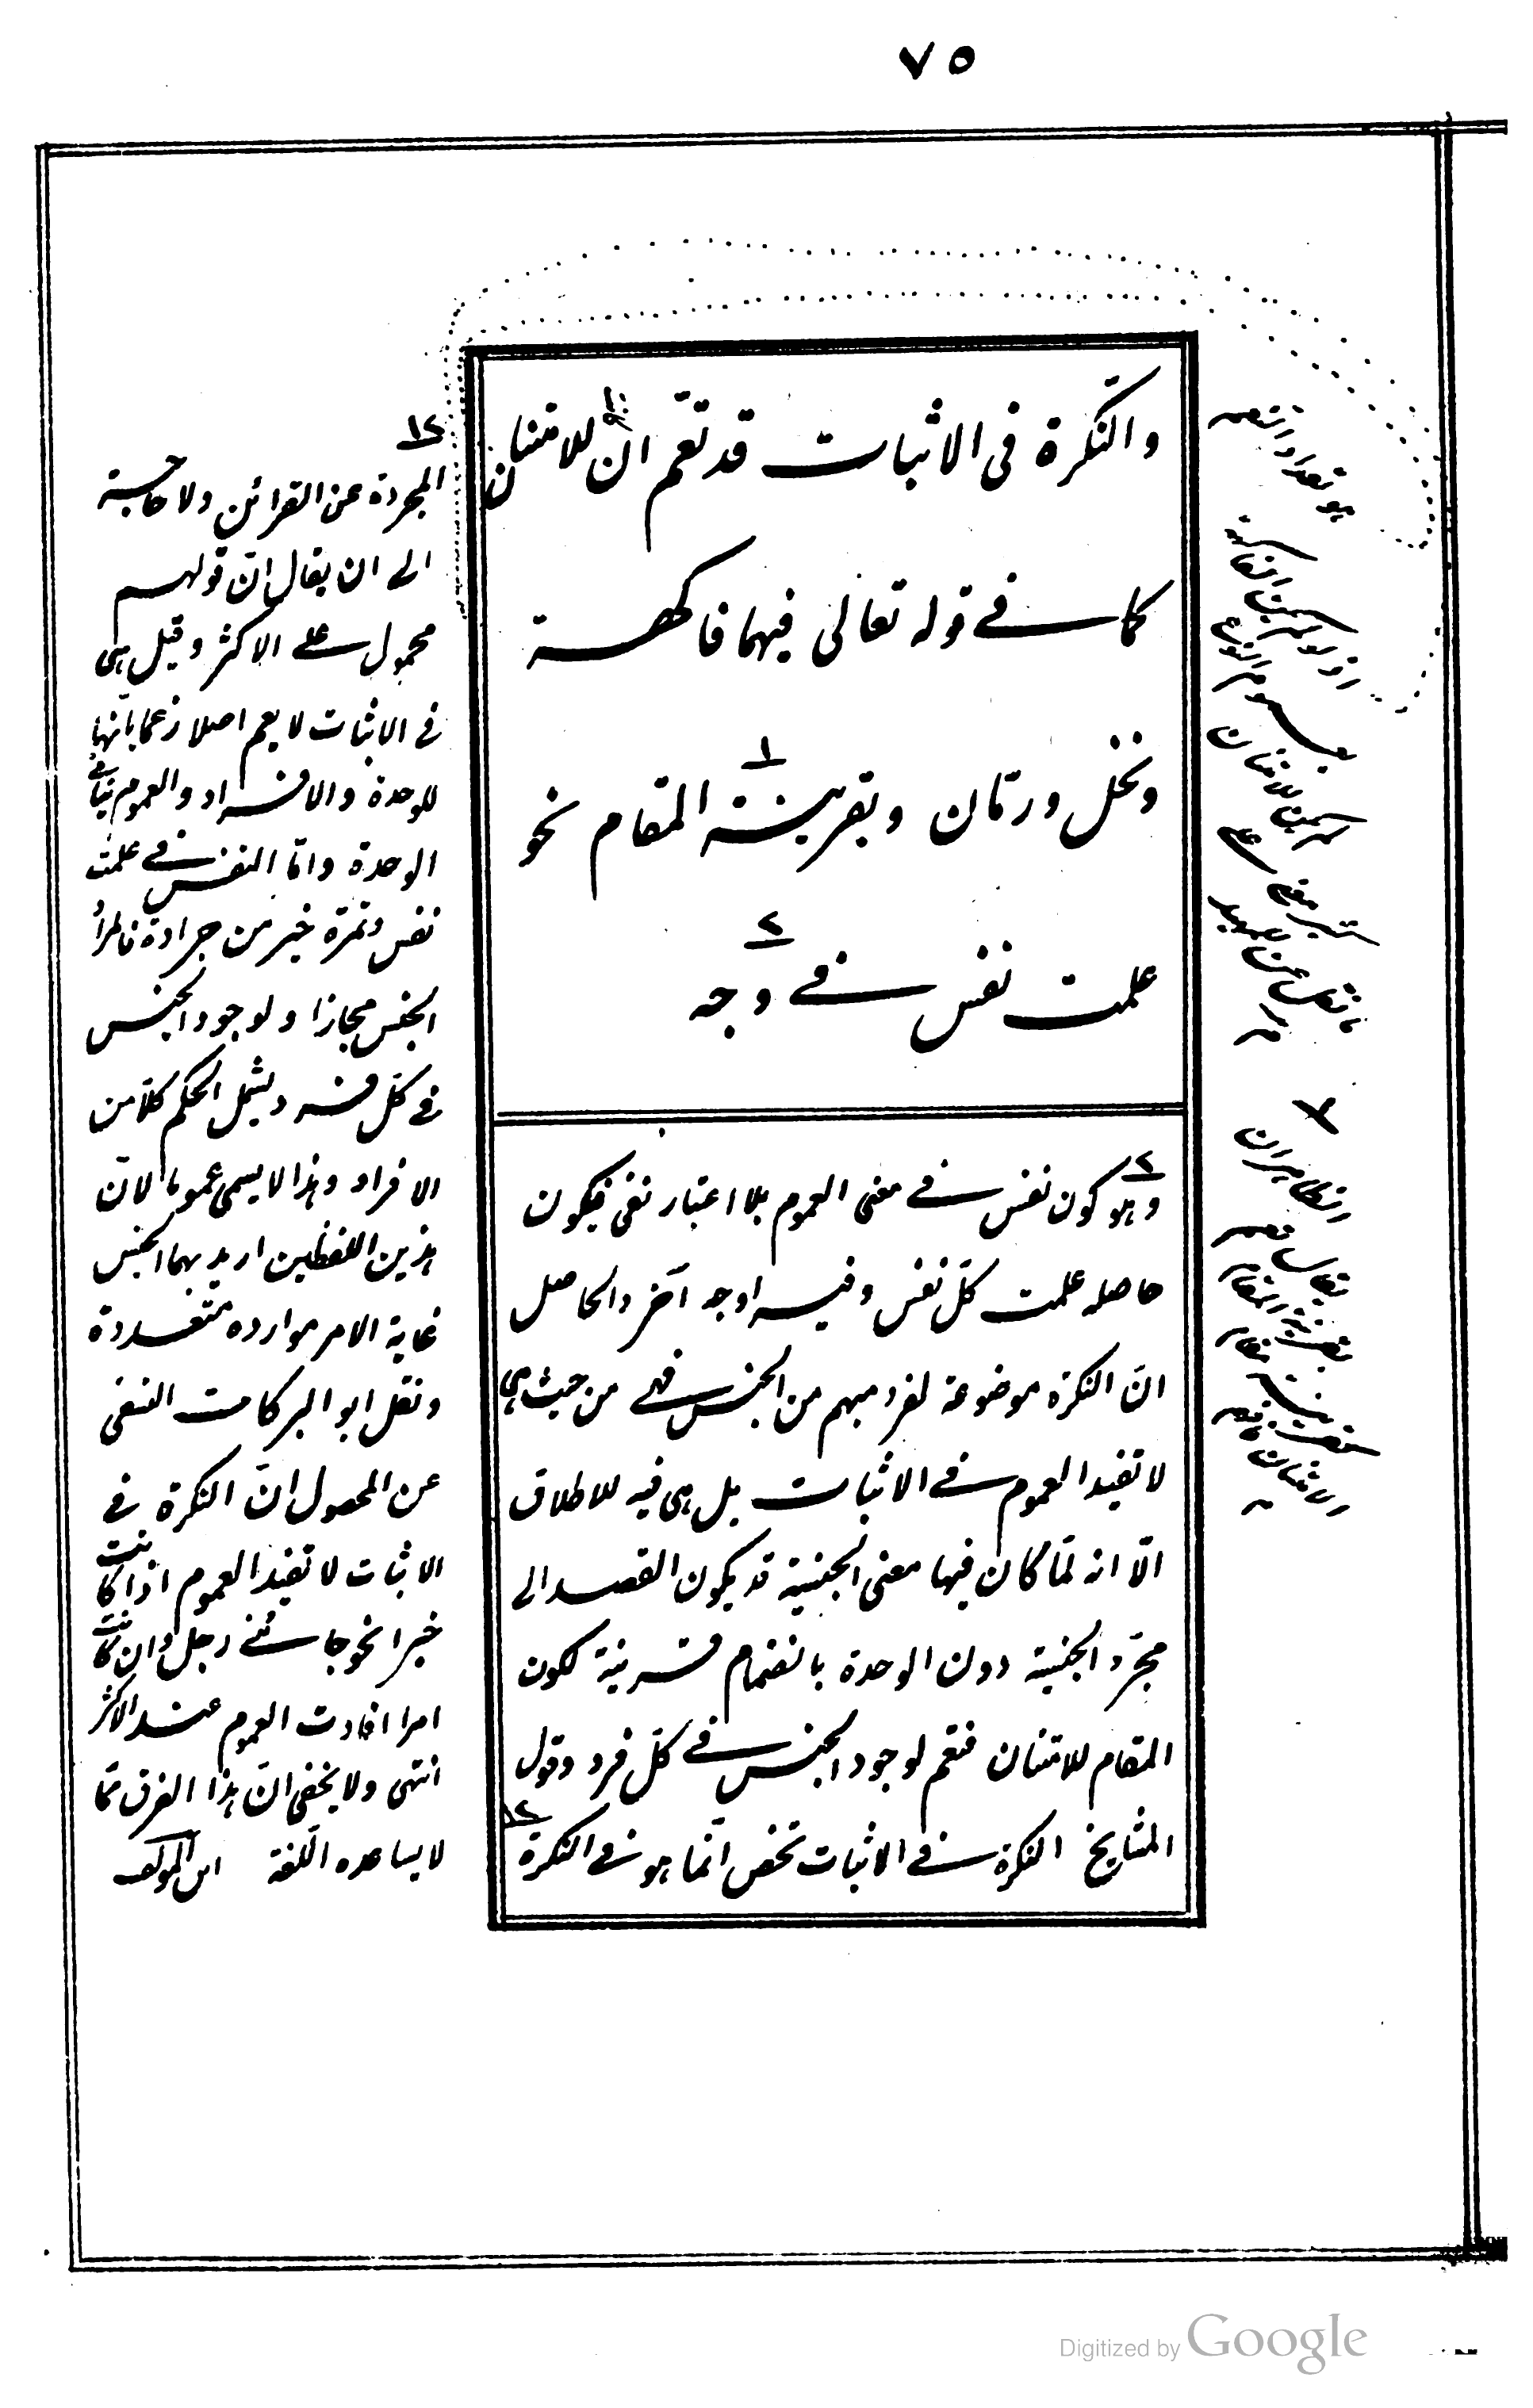 ٧٥
والنّكرة فى الاثبات قد تعمّ ان للامتنان
كما فے قوله تعالى فيهما فاكهة
ونخل ورمّان وبقرينة المقام نحو
علمت نفس فے وجه
وهو كون نفس فے معنى العموم بلا اعتبار نفى فيكون
حاصله علمت كلّ نفس وفيه اوجه اخر والحاصل
انّ النكرة موضوعة لفرد مبهم من الجنس فهے من حيث هى
لا تفيد العموم فے الاثبات بل هى فيه للاطلاق
الّا انه لمّا كان فيها معنى الجنسية قد يكون القصد الى
مجرّد الجنسية دون الوحدة بانضمام قرينة ككون
المقام للامتنان فتعم لوجود الجنس فے كلّ فرد وقول
المشايخ النكرة فے الاثبات تخصّ انّما هو فے النكرة
المجردة عن القرائن ولا حاجة
الى ان يقال انّ قولهم
محمول على الاكثر وقيل هى
فى الاثبات لا يعم اصلا زعما بانّها
للوحدة والافراد والعموم ينافى
الوحدة وامّا النفس فے علمت
نفس وتمرة خير من جرادة فالمراد
الجنس مجازا ولوجود الجنس
فى كلّ فرد يشمل الحكم كلّا من
الافراد وهذا لا يسمى عموما لانّ
هذين اللفظين اريد بهما الجنس
غاية الامر موارده متعددة
ونقل ابو البركات النسفى
عن المحصول انّ النكرة فى
الاثبات لا تفيد العموم اذا كانت
خبرا نحو جائنى رجل وان كانت
امرا افادت العموم عند الاكثر
انتهى ولا يخفى انّ هذا الفرق ممّا
لا يساعده اللّغة ابن المؤلف
هو تعداد النعمة
Digitized by Google